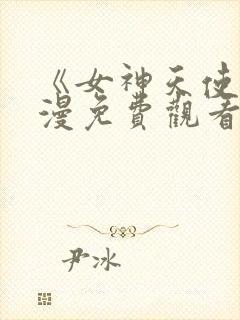 《女神天使
漫免費觀看
尹冰